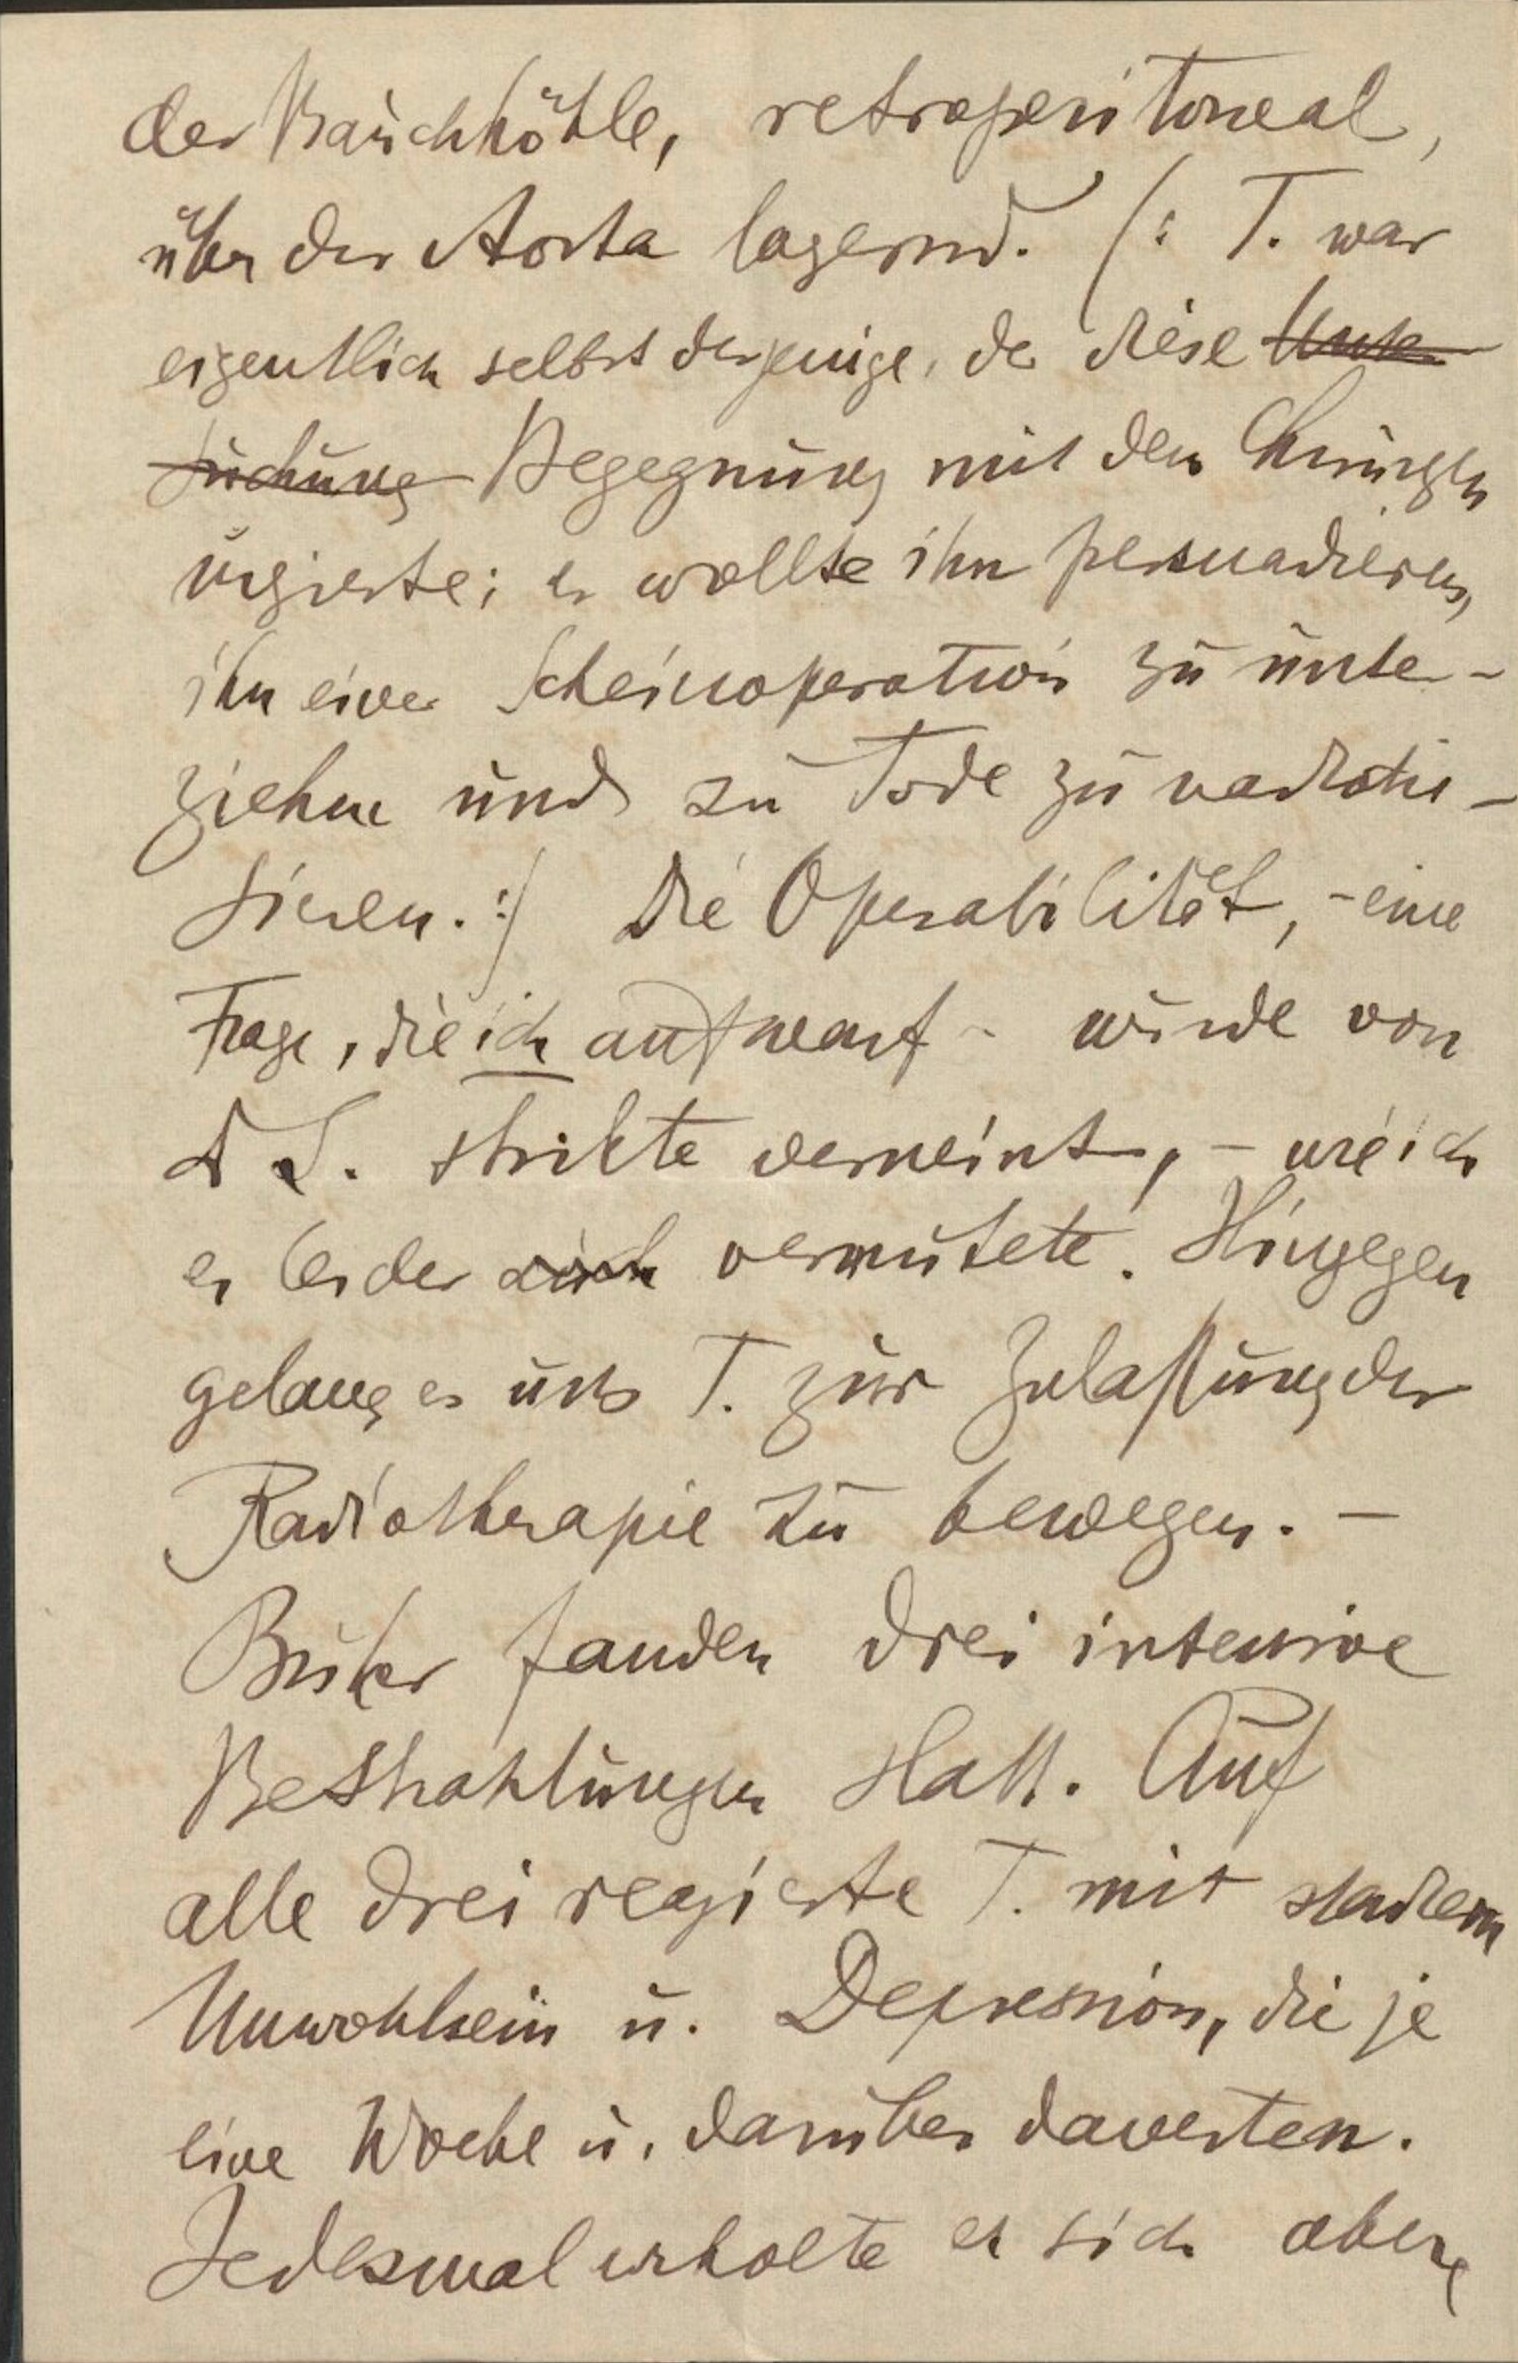 der Bauchhöhle, retroperitoneal,
über der Aorta lagernd. (: T. war
eigentlich selbst derjenige, der diese Unter-
suchung Begegnung mit dem Chirurgen
urgierte; er wollte ihn persuadieren,
ihn einer Scheinoperation zu unter-
ziehen und zu Tode zu narkoti-
sieren. :) Die Operabilität, - eine
Frage, die ich aufwarf - wurde von
L. strikte verneint, - wie ich
es leider vermutete. Hingegen
gelang es uns T. zur Zulassung der
Radiotherapie zu bewegen. -
Bisher fanden drei intensive
Bestrahlungen statt. Auf
alle drei reagierte T. mit starkem
Unwohlsein u. Depression, die je
eine Woche u. darüber dauerten.
Jedesmal erholte er sich aber,